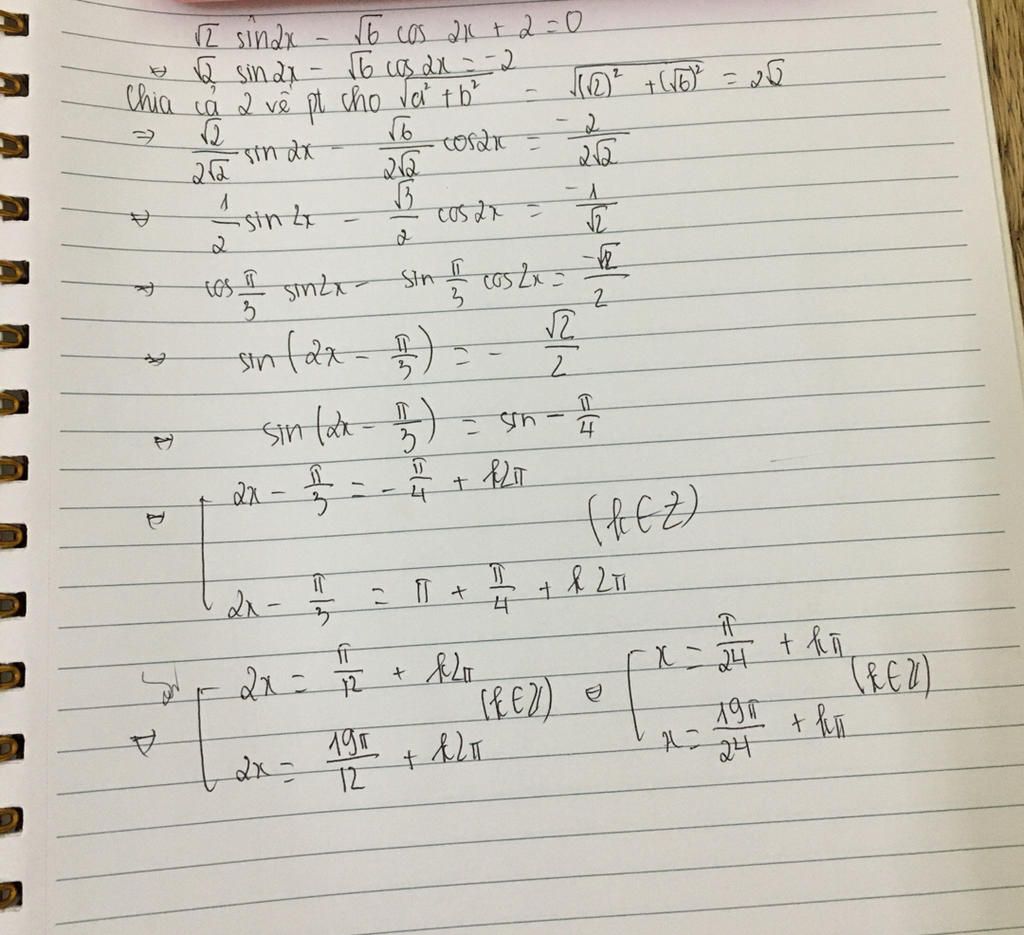 √2 sin2x - √6 cos 2x + 2 = 0
⇔ √2 sin2x - √6 cos2x = -2
Chia cả 2 vế pt cho √(a² + b²) = √((√2)² + (√6)²) = 2√2
⇒ √2/(2√2) sin 2x - √6/(2√2) cos2x = -2/(2√2)
⇔ 1/2 sin 2x - √3/2 cos 2x = -1/√2
⇔ cos π/3 sin2x - sin π/3 cos2x = -√2/2
⇔ sin(2x - π/3) = - √2/2
⇔ sin(2x - π/3) = sin - π/4
⇔ [ 2x - π/3 = - π/4 + k2π
(k∈Z)
2x - π/3 = π + π/4 + k2π
⇔ [ 2x = π/12 + k2π (k∈Z) ⇔ [ x = π/24 + kπ (k∈Z)
2x = 19π/12 + k2π x = 19π/24 + kπ